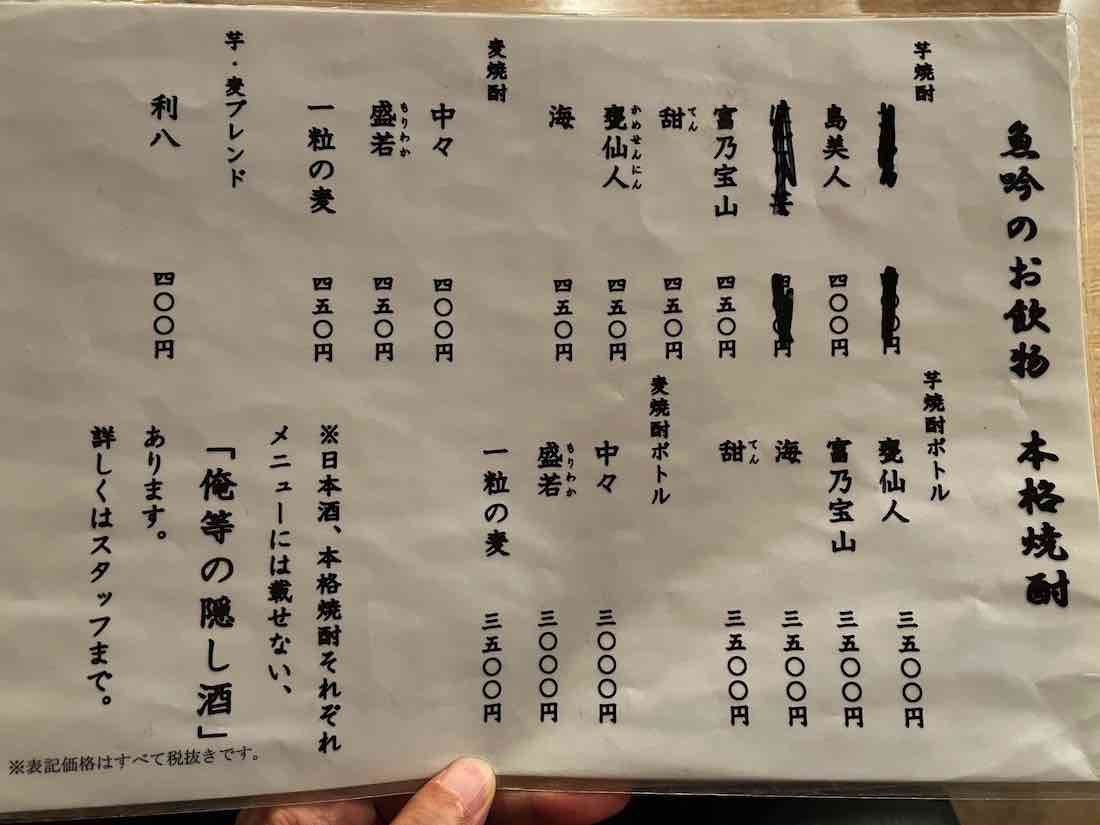 魚吟のお飲物 本格焼酎
芋焼酎
円
島美人 四〇〇円
円
富乃宝山 四五〇円
甜 てん 四五〇円
甕仙人 かめせんにん 四五〇円
海 四五〇円
麦焼酎
中々 四〇〇円
盛若 もりわか 四五〇円
一粒の麦 四五〇円
芋・麦ブレンド
利八 四〇〇円
芋焼酎ボトル
甕仙人 三五〇〇円
富乃宝山 三五〇〇円
海 三五〇〇円
甜 てん 三五〇〇円
麦焼酎ボトル
中々 三〇〇〇円
盛若 もりわか 三〇〇〇円
一粒の麦 三五〇〇円
※日本酒、本格焼酎それぞれ
メニューには載せない、
「俺等の隠し酒」
あります。
詳しくはスタッフまで。
※表記価格はすべて税抜きです。